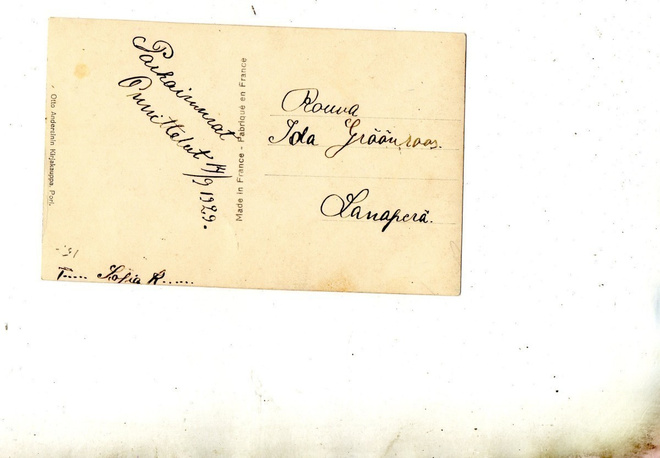 Parhaimmat
Onnittelut 14/9 1929.
T..... Sofia K......
Otto Anderulnin Kirjakauppa, Pori.
Made in France - Fabriqué en France
Rouva
Ida Gröönroos.
Lanaperä.